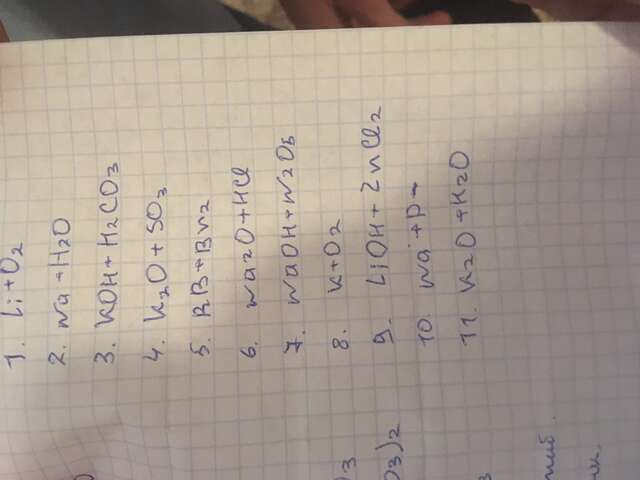 1. Li+O2
2. Na+H2O
3. KOH+H2CO3
4. K2O+SO3
5. RB+Br2
6. Na2O+HCl
7. NaOH+N2O5
8. K+O2
9. LiOH+ZnCl2
10. Na+P-
11. K2O+H2O